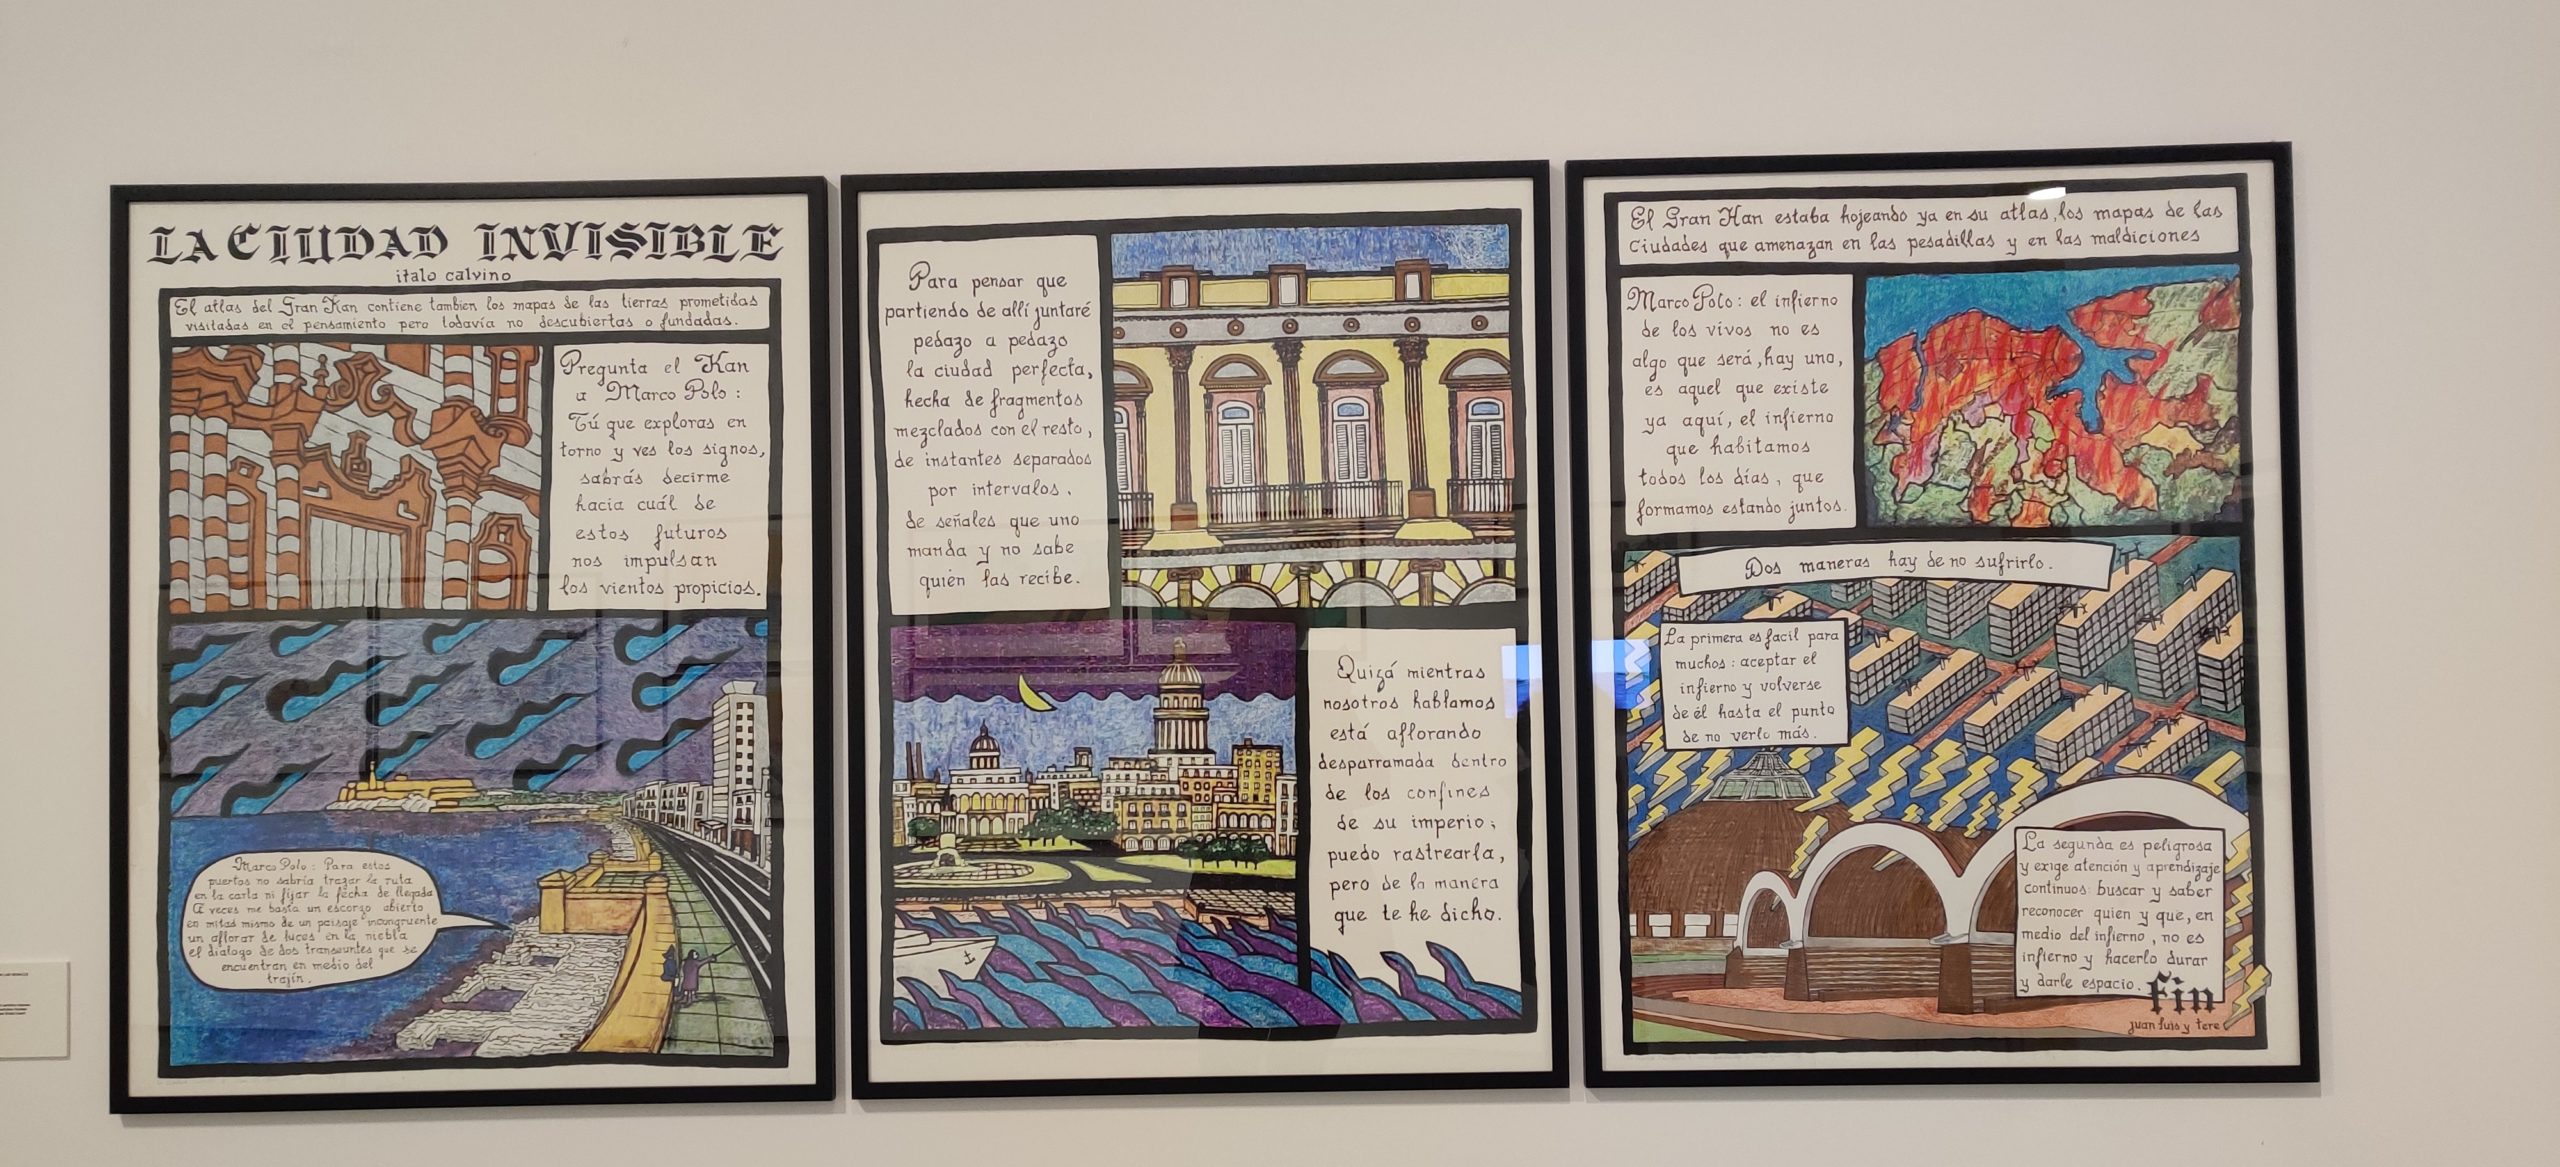 LA CIUDAD INVISIBLE
italo calvino
El atlas del Gran Kan contiene tambien los mapas de las tierras prometidas
visitadas en el pensamiento pero todavía no descubiertas o fundadas.
Pregunta el Kan
a Marco Polo :
Tú que exploras en
torno y ves los signos,
sabrás decirme
hacia cuál de
estos futuros
nos impulsan
los vientos propicios.
Marco Polo : Para estos
puertos no sabría trazar la ruta
en la carta ni fijar la fecha de llegada
A veces me basta un escorzo abierto
en mitad mismo de un paisaje incongruente
un aflorar de luces en la niebla
el dialogo de dos transeuntes que se
encuentran en medio del
trajín.
Para pensar que
partiendo de allí juntaré
pedazo a pedazo
la ciudad perfecta,
hecha de fragmentos
mezclados con el resto,
de instantes separados
por intervalos.
de señales que uno
manda y no sabe
quién las recibe.
Quizá mientras
nosotros hablamos
está aflorando
desparramada dentro
de los confines
de su imperio;
puedo rastrearla,
pero de la manera
que te he dicho.
El Gran Kan estaba hojeando ya en su atlas, los mapas de las
Ciudades que amenazan en las pesadillas y en las maldiciones
Marco Polo : el infierno
de los vivos no es
algo que será, hay uno,
es aquel que existe
ya aquí, el infierno
que habitamos
todos los días, que
formamos estando juntos.
Dos maneras hay de no sufrirlo.
La primera es facil para
muchos : aceptar el
infierno y volverse
de él hasta el punto
de no verlo más.
La segunda es peligrosa
y exige atención y aprendizaje
continuos: buscar y saber
reconocer quien y que, en
medio del infierno, no es
infierno y hacerlo durar
y darle espacio.
fin
juan luis y tere